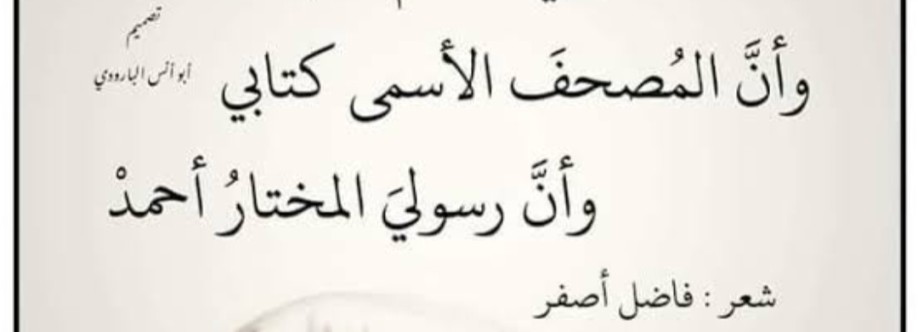 تصميم
أبو أنس البارودي
وأنَّ المُصحفَ الأسمى كتابي
وأنَّ رسوليَ المختارُ أحمدْ
شعر : فاضل أصفر